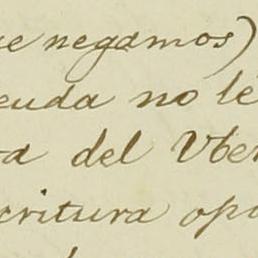 ue negamos)
euda no le
a del Vber
critura opo